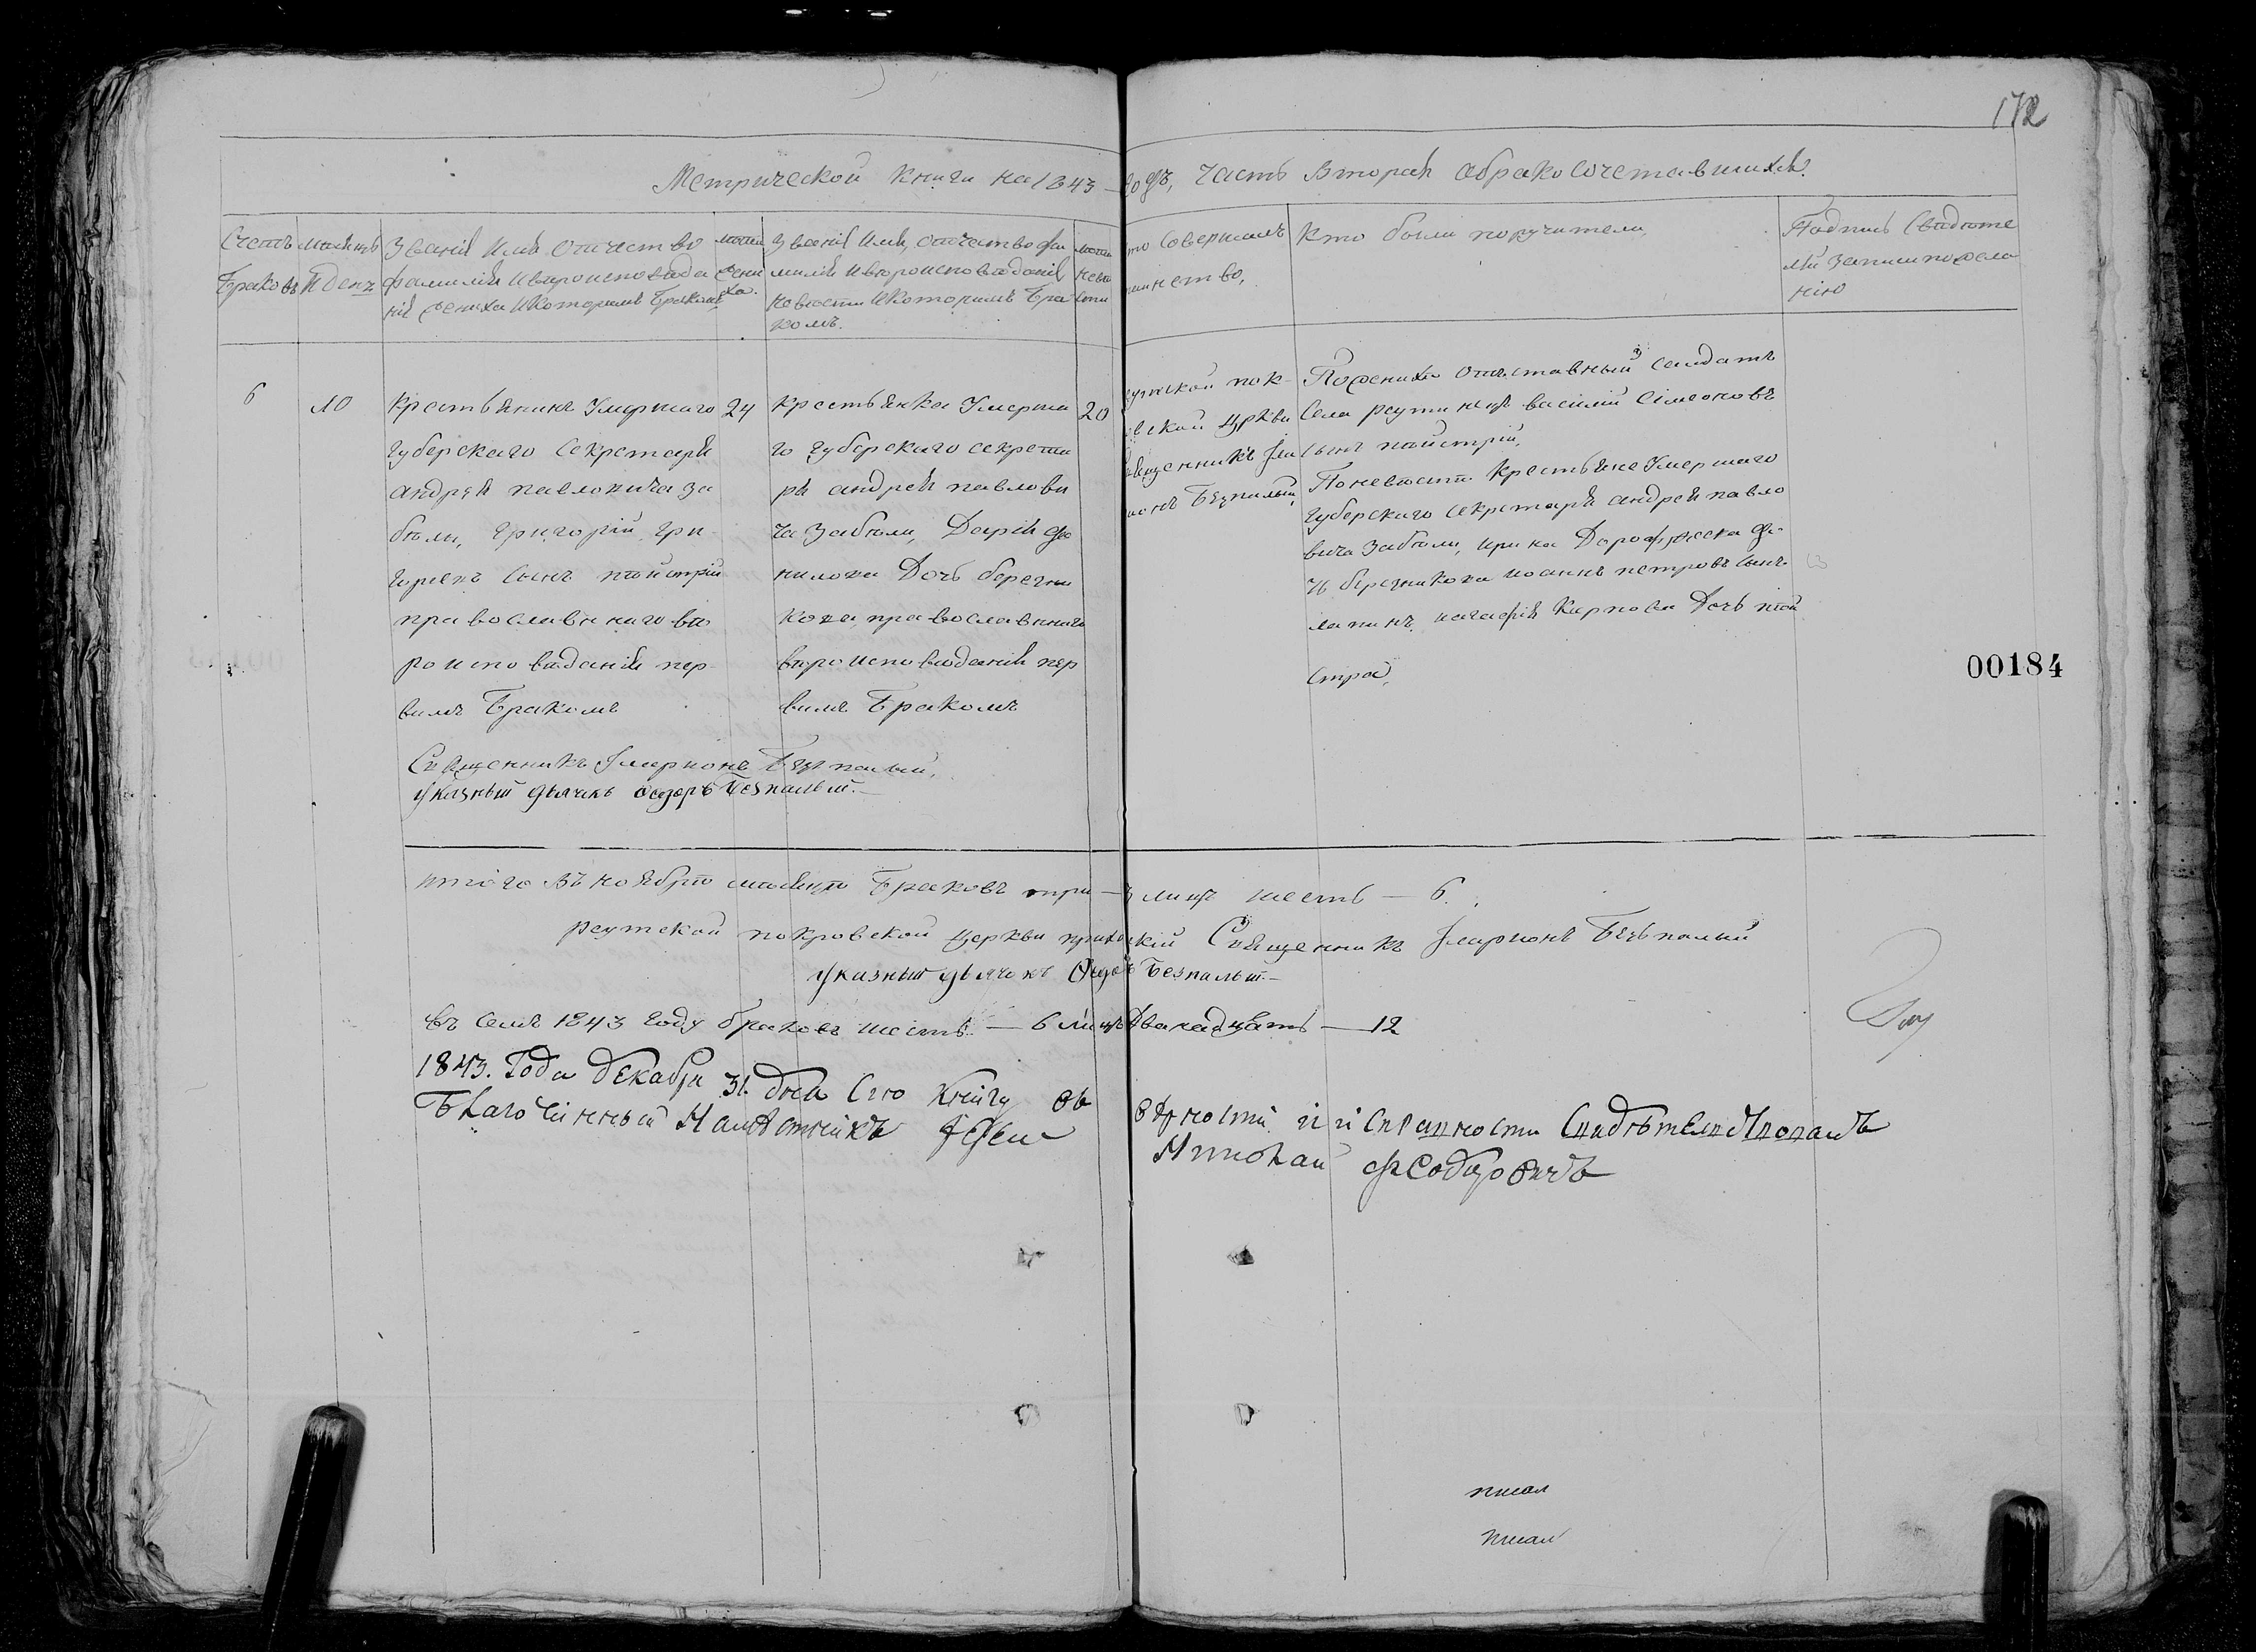 172
Метрической книги на 1843 – годъ, часть вторая обракосочетавшихся.
Счетъ
Браковъ
мѣсяцъ
И день
Званіе Имя Отчество
фамилія Ивѣроисповѣда
ніе жениха Икоторымъ Бракомъ
жени
ха.
Званіе Имя, отчество фа
милія Ивѣроисповѣданіе
невѣсты Икоторымъ Бра
комъ.
невѣ
сты
то Совершалъ
таинство,
Кто были поручители,
Подпись Свидѣте
лей записи пожела
нію
6
10
крестьянинъ Умершаго
Губерскаго Секретаря
андрея павловича за
бѣли, григорій гри
горьевъ сынъ
православнаго вѣ
роисповѣданія пер
вимъ Бракомъ
24
крестьянка Умерша
го Губерскаго секрета
ря андрея павлови
ча Забѣли, Дарія
Дочь березни
кова, православнаго
вѣроисповѣданія пер
вимъ Бракомъ
20
реутской пок-
ровской церкви
Священникъ Ила
ріонъ Безпалый,
Пожениха отставный солдатъ
Села реутинецъ василій Сімеоновъ
сынъ
Поневѣсти крестьяне Умершаго
Губерскаго секретаря андрея павло
вича Забѣли,
березникова иоаннъ петровъ сынъ
Карпова Дочь
стра,
00184
Священникъ Иларіонъ Безпалый,
Указный дьячекъ Ѳедоръ Безпалый.—
итого въ ноябрѣ мѣсяцѣ Браковъ три — лицъ шесть — 6.
реутской покровской церкви приходскій Священникъ Иларіонъ Безпалый
Указный дьячекъ Ѳедоръ Безпалый.—
въ семъ 1843 году браковъ шесть — 6 лицъ Двенадцать — 12
1843. Года декабря 31. дня Сію Книгу въ вѣрности и исправности Свидѣтельствовалъ
Благочинный Намѣстникъ Іерей Николай Ѳеодоровичъ
писал
писал